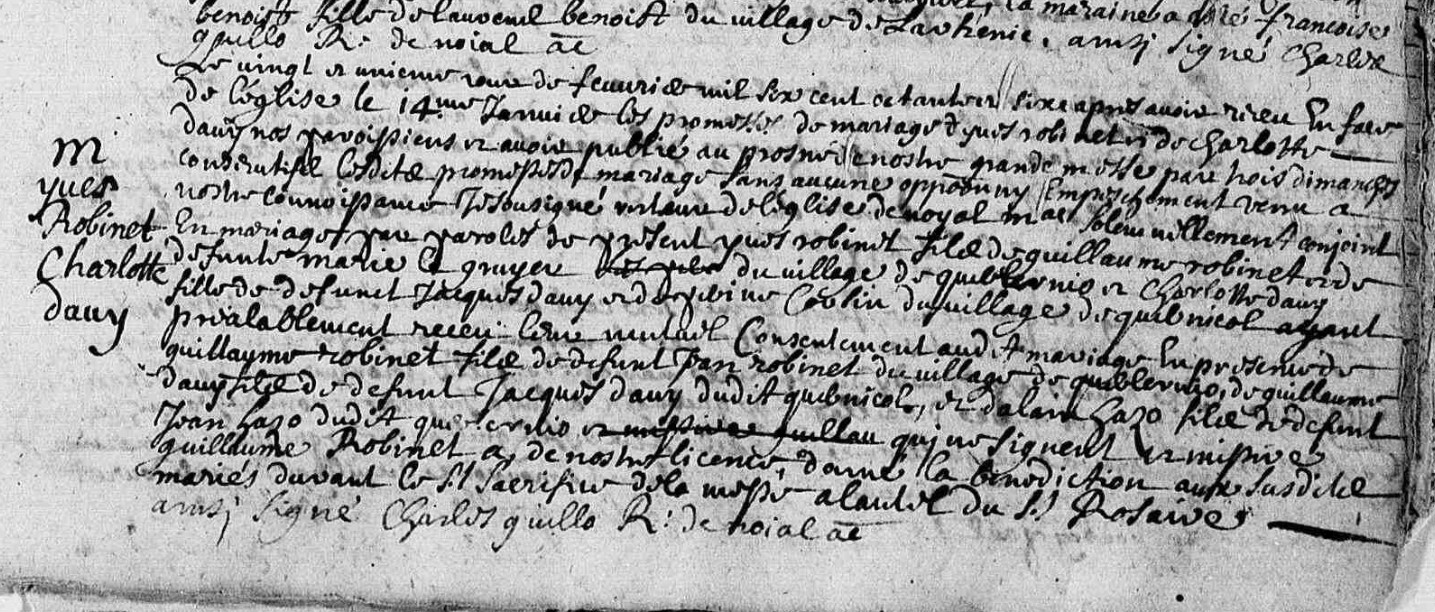 benoist fille de lauvenel benoist du village de , la maraine a esté francoise
guillo R: de noial ac ainsi signé Charles
Le vingt et unieme jour de feuvrier mil six cent octante et six apres avoir receu En face
de léglise le 14.me Janvier les promesses de mariage d'yves robinet et de Charlotte
davy nos paroissiens et avoir publié au prosne de nostre grande messe par trois dimanches
consecutifs lesdites promesses de mariage sans aucune opposition ny Empeschement venu a
nostre connoissance Je sousigné de léglise de noyal solemnellement conjoint
En mariage par paroles de present yves robinet fils de guillaume robinet et de
defunte marie le gruyer du village de quiblernio et Charlotte davy
fille de defunct Jacques davy et de Colin du village de quibnicol ayant
prealablement receu leur mutuel Consentement audit mariage En presence de
guillaume robinet fils de defunt Jean robinet du village de quiblernio, de guillaume
davy fils de defunt Jacques davy dudit quibnicol, et dalain hazo fils de defunt
Jean hazo dudit et missire guillau qui ne signent et missire
guillaume Robinet a, de nostre licence, donné la benediction aux susdits
mariés durant le St Sacrifice de la messe a lautel du St Rosaire
ainsi signé Charles guillo R: de noial ac
m
yves
Robinet
Charlotte
davy